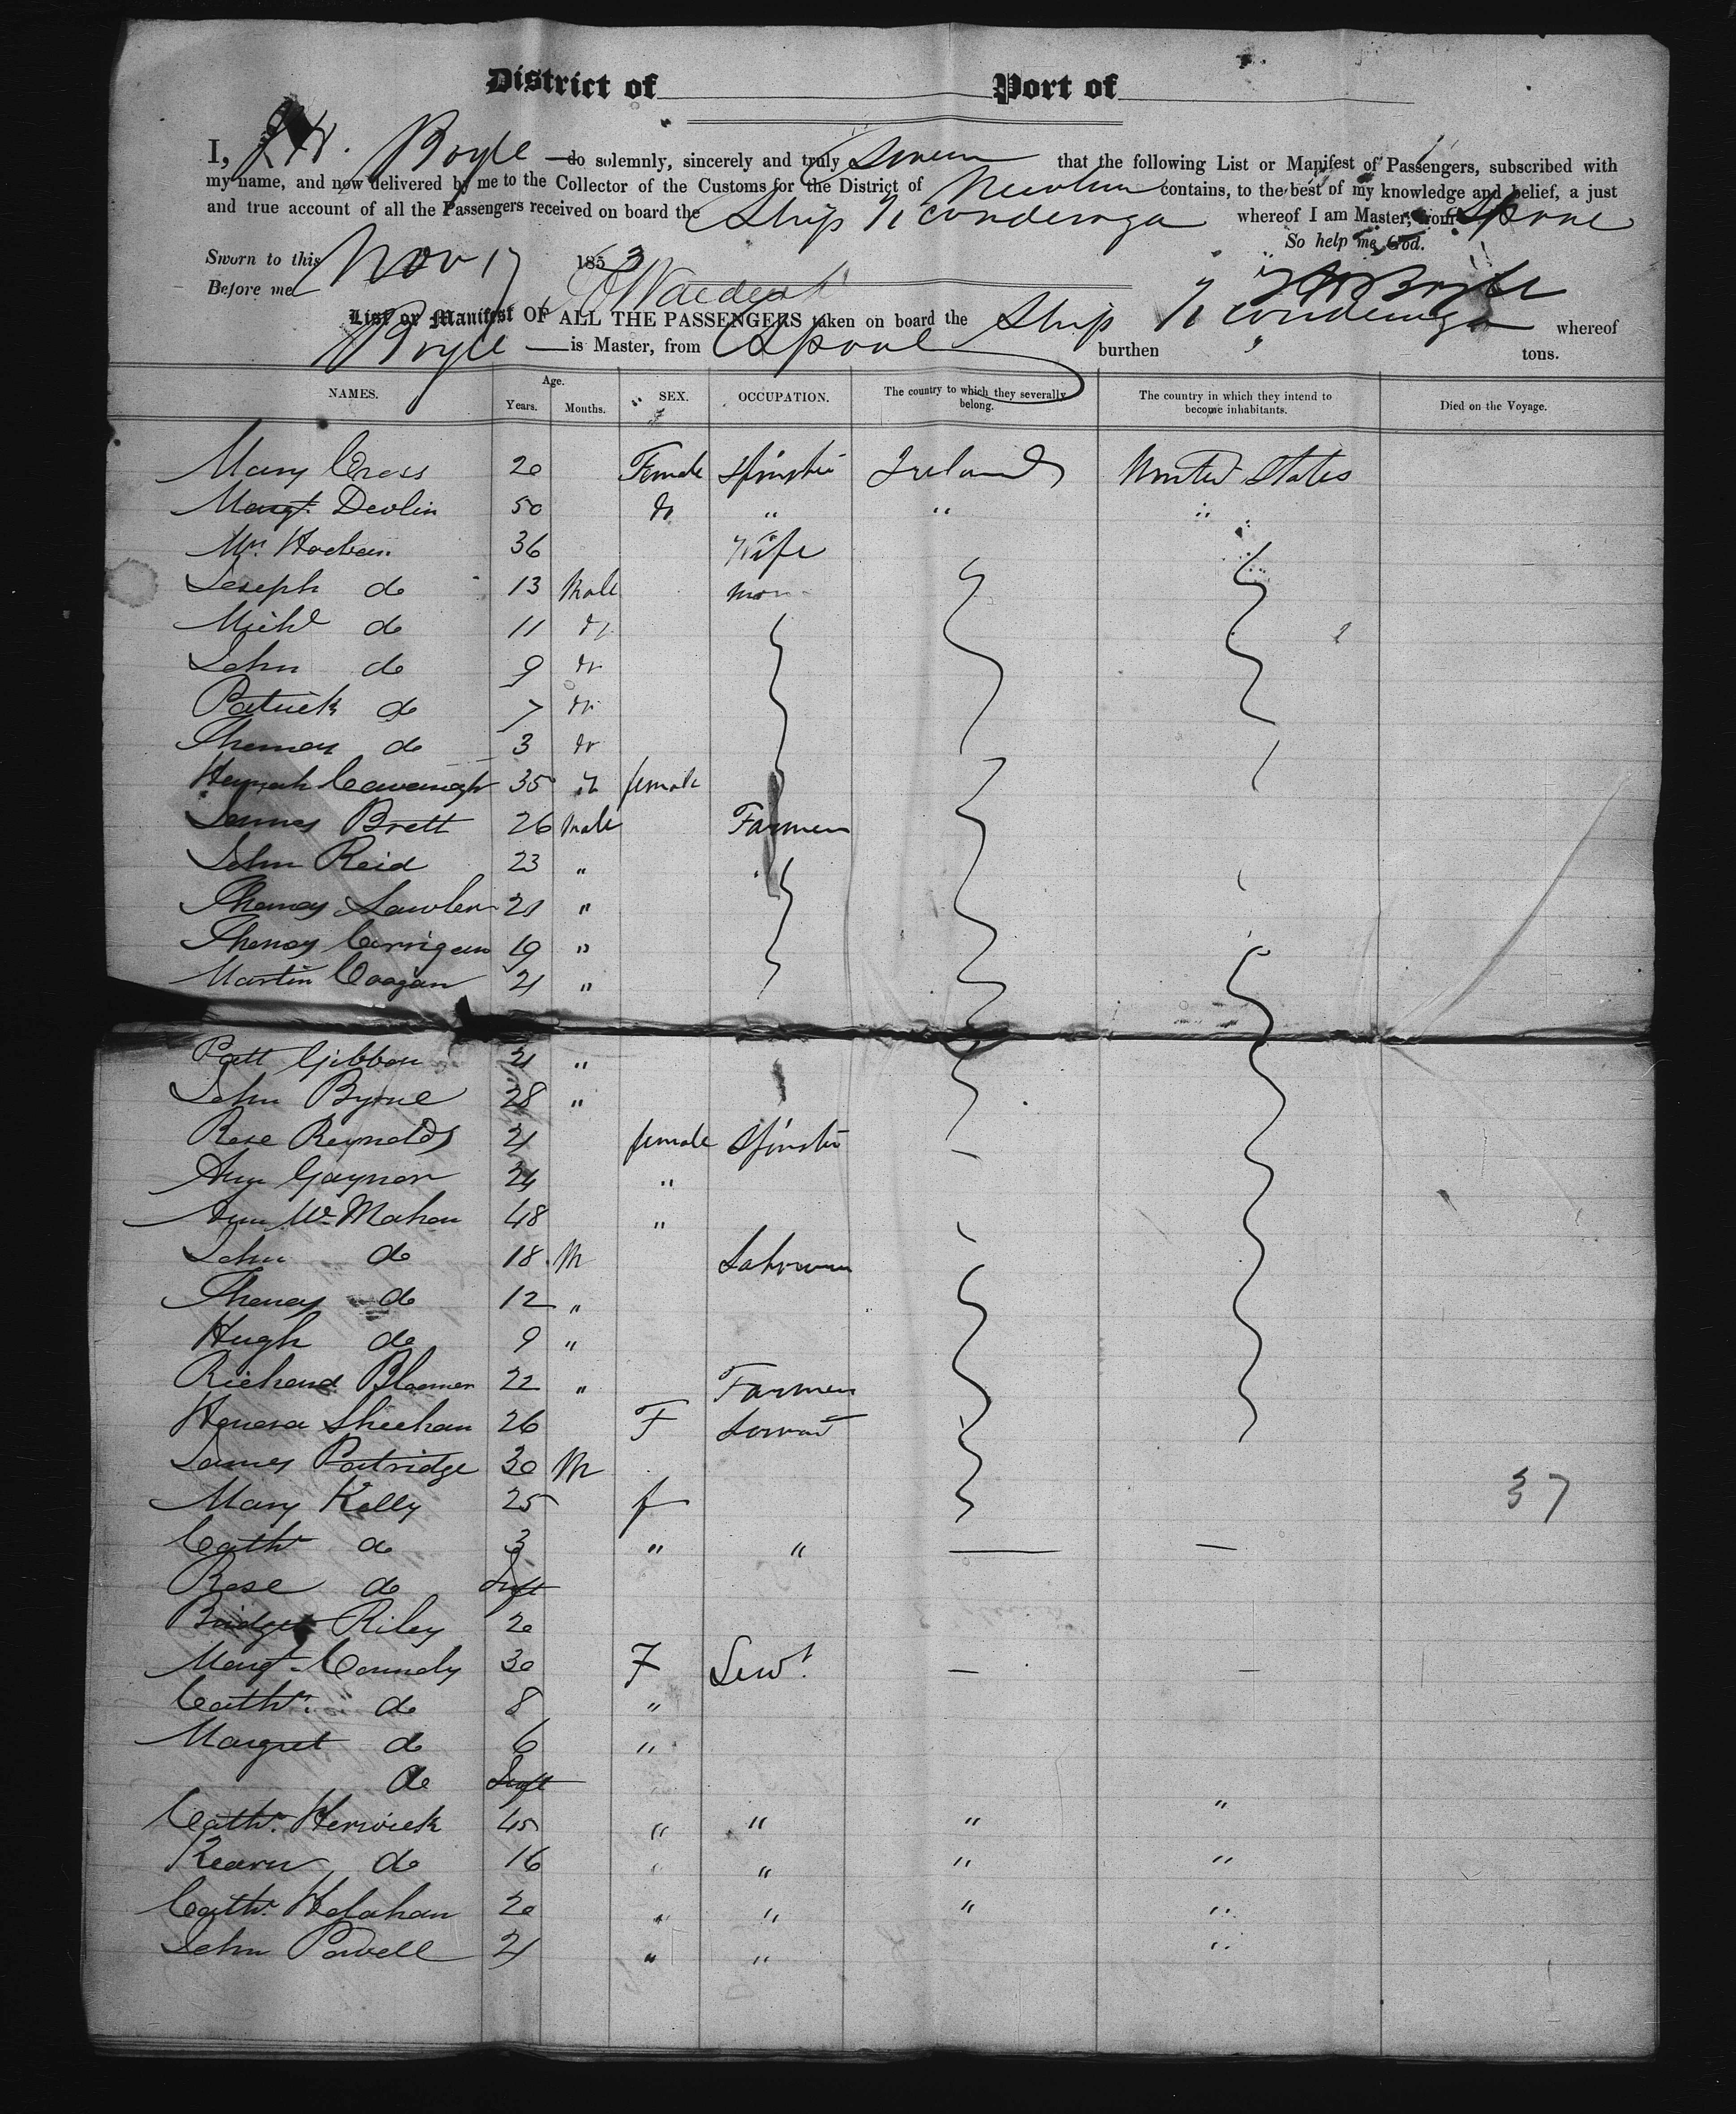 District of Port of
I, J. H. Boyle do solemnly, sincerely and truly swear that the following List or Manifest of Passengers, subscribed with
my name, and now delivered by me to the Collector of the Customs for the District of contains, to the best of my knowledge and belief, a just
and true account of all the Passengers received on board the Ship Ticonderoga whereof I am Master, from Lpool
So help me God.
Sworn to this Nov 17 1853
Before me
List or Manifest OF ALL THE PASSENGERS taken on board the Ship Ticonderoga whereof
Boyle is Master, from Lpool burthen tons.
NAMES. Age. Years. Months. SEX. OCCUPATION. The country to which they severally belong. The country in which they intend to become inhabitants. Died on the Voyage.
Mary Cross 20 Female Spinster Ireland United States
Margt. Devlin 50 do " " "
Mrs. Hoeban 36 Wife
Joseph do 13 Male
Michl do 11 do
John do 9 do
Patrick do 7 do
Thomas do 3 do
Hannah Cavanagh 35 female
James Brett 26 Male Farmer
John Reid 23 "
Thomas Lawler 21 "
Thomas Corrigan 19 "
Martin Coogan 21 "
Patt Gibbon 21 "
John Byrne 28 "
Rose Reynolds 21 female Spinster
Ann Gaynor 24 "
Ann McMahon 48 "
John do 18 M Labourer
Thomas do 12 "
Hugh do 9 "
Richard Bloomer 22 " Farmer
Honora Sheehan 26 F Servant
James Patridge 30 M
Mary Kelly 25 f 37
Cathr do 3 " "
Rose do Inft
Bridget Riley 20
Margt. Connely 30 F Servt.
Cathr. do 8 "
Margret do 6 "
do Inft
Cathr. Herwick 45 " " " "
Kearn do 16 " " " "
Cathr. Holahan 20 " " " "
John Powell 21 " " "